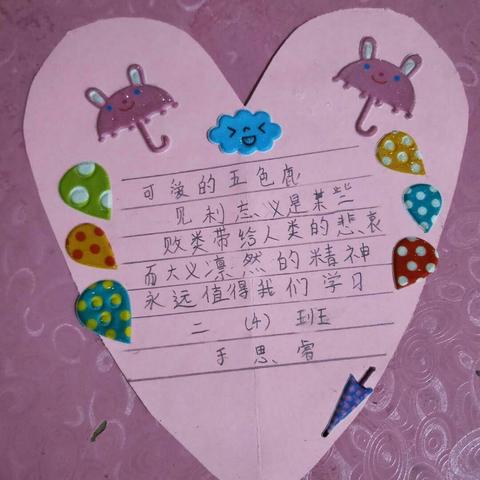 可爱的五色鹿
见利忘义是某些
败类带给人类的悲哀
而大义凛然的精神
永远值得我们学习
二 (4) 班
于思睿